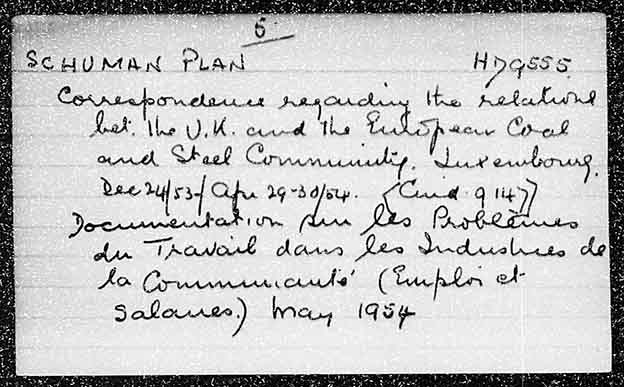 5
SCHUMAN PLAN HD9555.
Correspondence regarding the relations
bet. the U.K. and the European Coal
and Steel Community. Luxembourg,
Dec 24/53-/ Apr 29-30/54. (Cmd. 9147)
Documentation sur les Problèmes
du Travail dans les Industries de
la Communauté (Emploi et
Salaires.) May 1954